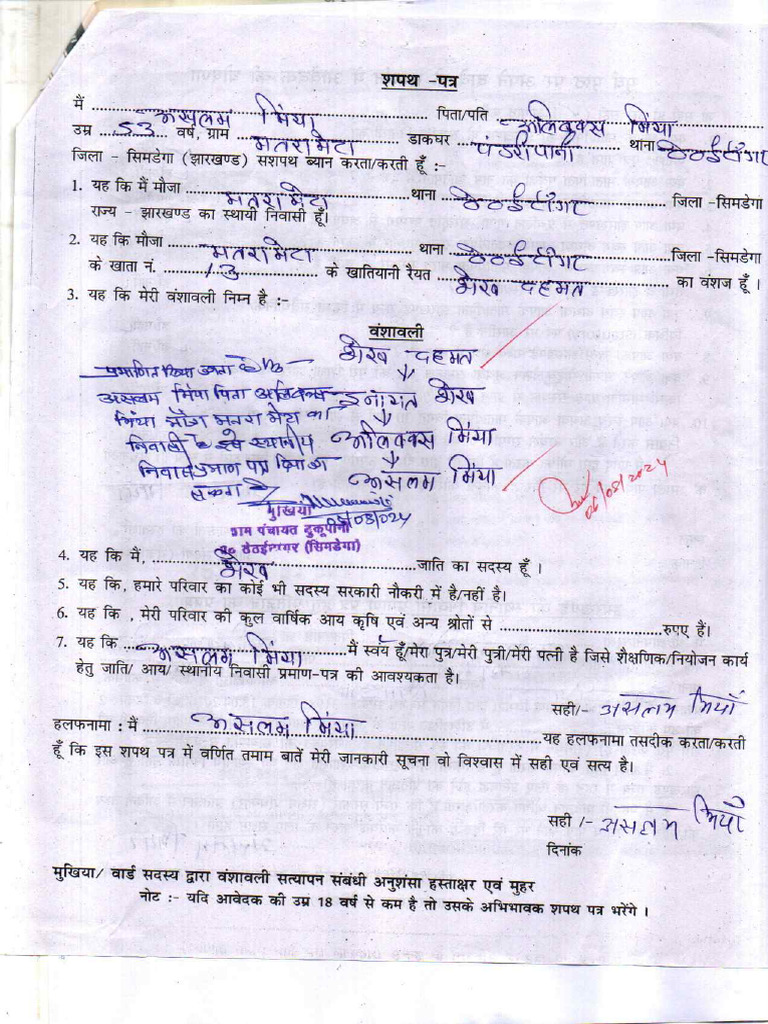 शपथ -पत्र
मैं असलम मिंया पिता/पति अलिबक्स मिंया
उम्र 53 वर्ष, ग्राम मतरामेटा डाकघर पंडरीपानी थाना ठेठईटांगर
जिला - सिमडेगा (झारखण्ड) सशपथ ब्यान करता/करती हूँ :-
1. यह कि मैं मौजा मतरामेटा थाना ठेठईटांगर जिला -सिमडेगा
राज्य - झारखण्ड का स्थायी निवासी हूँ।
2. यह कि मौजा मतरामेटा थाना ठेठईटांगर जिला -सिमडेगा
के खाता नं. 13 के खातियानी रैयत शेख दहमत का वंशज हूँ ।
3. यह कि मेरी वंशावली निम्न है :-
वंशावली
शेख दहमत
प्रमाणित किया जाता है कि
असलम मिंया पिता अलिबक्स इनायत शेख
मिंया ग्राम मतरामेटा का
निवासी है इसे स्थानीय अलिबक्स मिंया
निवास प्रमाण पत्र दिया जा असलम मिंया
सकता है
06/08/2024
मुखिया
/08/024
ग्राम पंचायत टुकूपानी
प्र० ठेठईटांगर (सिमडेगा)
4. यह कि मैं, शेख जाति का सदस्य हूँ ।
5. यह कि, हमारे परिवार का कोई भी सदस्य सरकारी नौकरी में है/नहीं है।
6. यह कि , मेरी परिवार की कुल वार्षिक आय कृषि एवं अन्य श्रोतों से रुपए हैं।
7. यह कि असलम मिंया मैं स्वंय हूँ/मेरा पुत्र/मेरी पुत्री/मेरी पत्नी है जिसे शैक्षणिक/नियोजन कार्य
हेतु जाति/ आय/ स्थानीय निवासी प्रमाण-पत्र की आवश्यकता है।
सही/- असलम मियाँ
हलफनामा : मैं असलम मिंया यह हलफनामा तसदीक करता/करती
हूँ कि इस शपथ पत्र में वर्णित तमाम बातें मेरी जानकारी सूचना वो विश्वास में सही एवं सत्य है।
सही /- असलम मियाँ
दिनांक
मुखिया/ वार्ड सदस्य द्वारा वंशावली सत्यापन संबंधी अनुशंसा हस्ताक्षर एवं मुहर
नोट :- यदि आवेदक की उम्र 18 वर्ष से कम है तो उसके अभिभावक शपथ पत्र भरेंगे ।